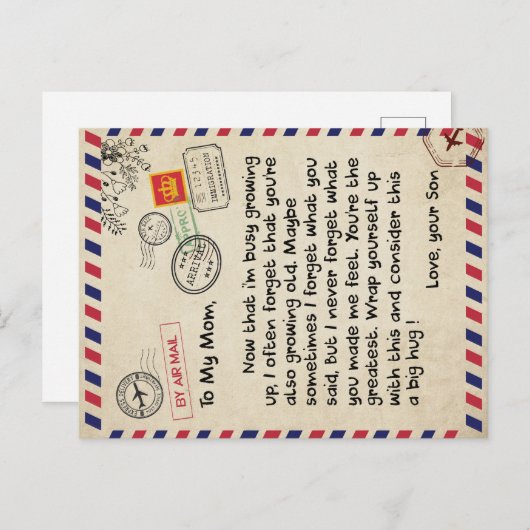 EXPRESS DELIVERY
BY AIR MAIL
ARRIVAL
12345
IMMIGRATION
To My Mom,
Now that i'm busy growing
up, I often forget that you're
also growing old. Maybe
sometimes I forget what you
said, but I never forget what
you made me feel. You're the
greatest. Wrap yourself up
with this and consider this
a big hug !
Love, your Son